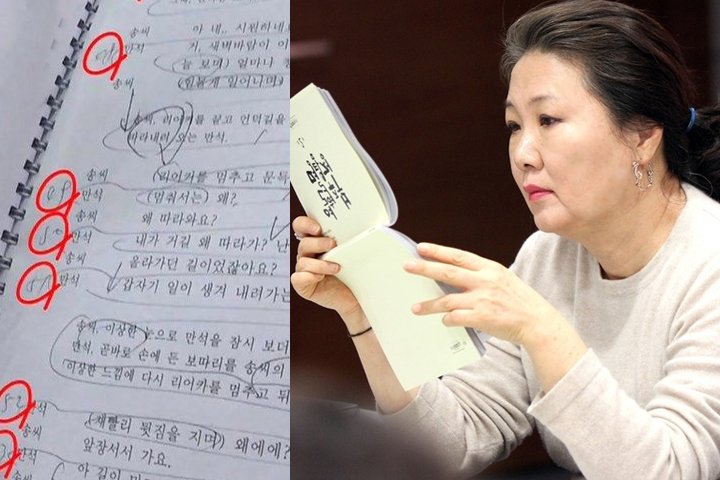 송씨 아 네.. 시원하네
만석 거, 새벽바람이 이
늘 보며) 얼마나
송씨 (힘들게 일어나며)
송씨, 리어카를 끌고 언덕길을
따라내려 오는 만석.
송씨 (리어카를 멈추고 문득
만석 (멈춰서는) 왜?
송씨 왜 따라와요?
만석 내가 거길 왜 따라가? 난
송씨 올라가던 길이었잖아요?
만석 갑자기 일이 생겨 내려가는
송씨, 이상한 눈으로 만석을 잠시 보더
만석, 곧바로 손에 든 보따리를 송씨의
이상한 느낌에 다시 리어카를 멈추고 뒤
만석 (재빨리 뒷짐을 지며) 왜에에?
송씨 앞장서서 가요.
만석 아 길이
송씨